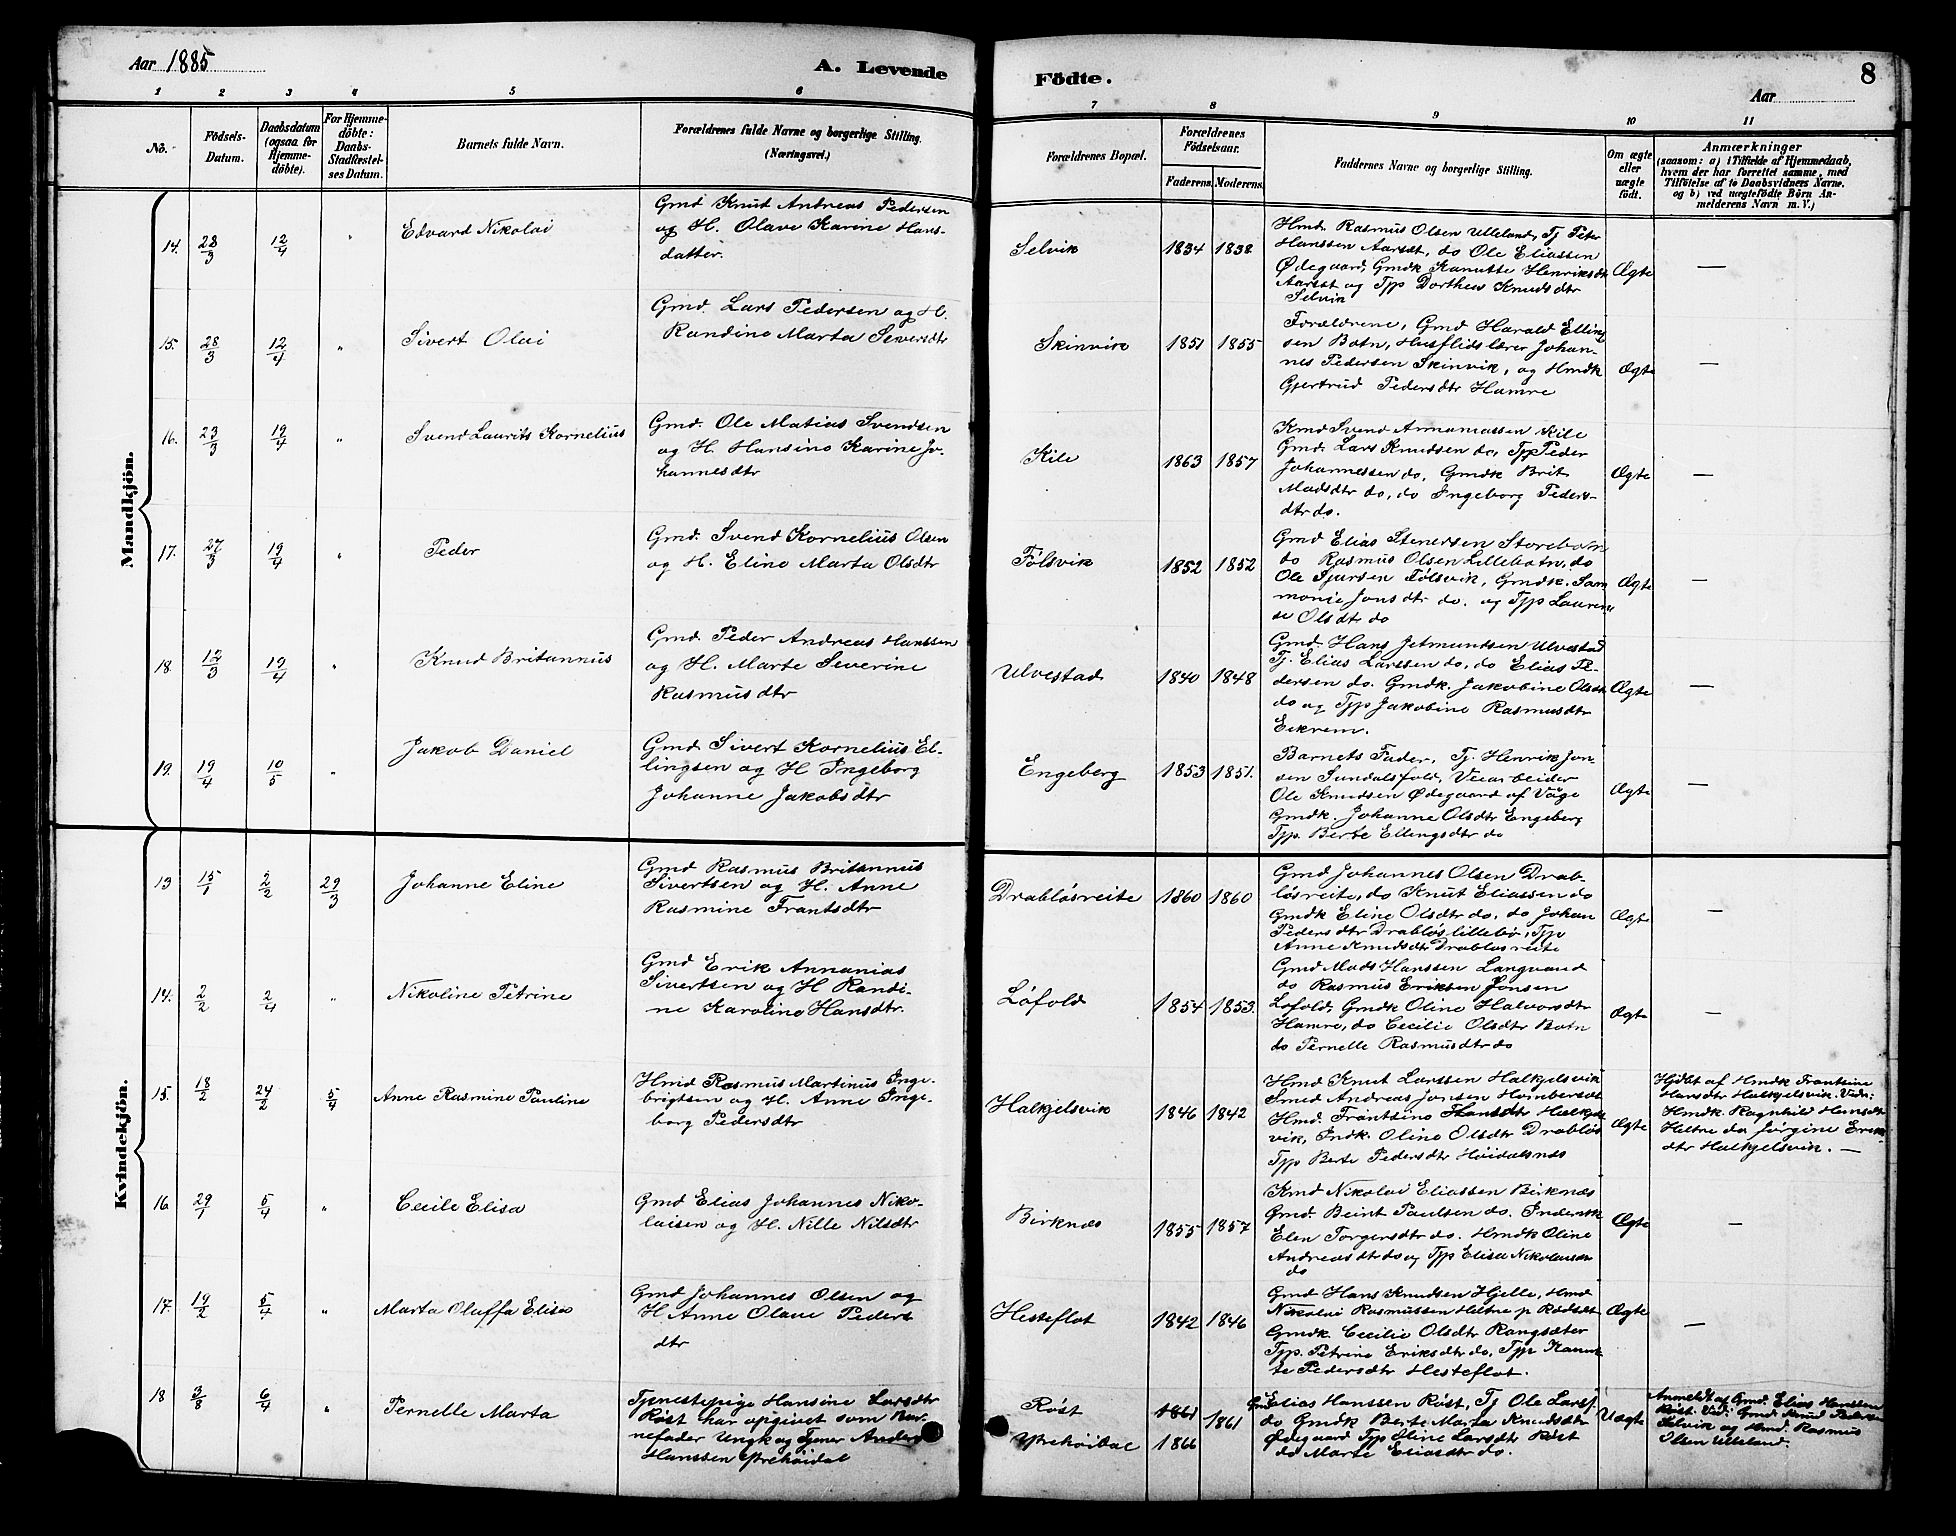 Aar 1885
A. Levende
Födte.
8
Aar
1 2 3 4 5 6 7 8 9 10 11
No.
Födsels-
Datum.
Daabsdatum
(ogsaa for
Hjemme-
döbte).
For Hjemme-
döbte:
Daabs-
Stadfæstel-
ses Datum.
Barnets fulde Navn.
Forældrenes fulde Navne og borgerlige Stilling.
(Næringsvei.)
Forældrenes Bopæl.
Forældrenes
Födselsaar.
Faderens. Moderens.
Faddernes Navne og borgerlige Stilling.
Om ægte
eller
uægte
födt.
Anmærkninger
(saasom: a) i Tilfælde af Hjemmedaab,
hvem der har forrettet samme, med
Tilföielse af to Daabsvidners Navne.
og b) ved uægtefödte Börn An-
melderens Navn m. V.)
Mandkjön.
14. 28/3 12/4 "
Edvard Nikolai
Gmd Knut Andreas Pedersen
og H. Olave Karine Hans-
datter.
Selvik
1834 1838
Hmd. Rasmus Olsen Ulleland, Tj Peter
Hanssen Aarsdt, do Ole Eliassen
Ødegaard, Gmdk Kanutte Henriksdt
Aarset og Tjp Dorthea Knudsdtr
Selvik
Ægte
—
15. 28/3 12/4 "
Sivert Olai
Gmd. Lars Pedersen og H.
Randine Marta Siversdtr
Skinvik
1851 1855
Forældrene, Gmd Harald Elling
sen Botn, Husflidslærer Johan-
nes Pedersen Skinvik, og Hmdk
Gjertrud Pedersdtr Hamre
Ægte
—
16. 23/3 19/4 "
Svend Laurits Kornelius
Gmd. Ole Matias Svendsen
og H. Hansine Karine Jo-
hannesdtr
Kile
1863 1857
Kmd Svend Annaniassen Kile
Gmd. Lars Knudsen do, Tjp Peder
Johannessen do, Gmdk Brit
Madsdtr do, do Ingeborg Peders-
dtr do.
Ægte
—
17. 27/3 19/4 "
Peder
Gmd. Svend Kornelius Olsen
og H. Eline Marta Olsdtr
Følsvik
1852 1852
Gmd Elias Stenersen Storebotn
do Rasmus Olsen Lillebotn, do
Ole Sjursen Følsvik, Gmdk. Sam
monie Jonsdtr do. og Tjp Laurent
se Olsdtr do
Ægte
—
18 12/3 19/4 "
Knud Britannus
Gmd. Peder Andreas Hanssen
og H. Marte Severine
Rasmusdtr
Ulvestad
1840 1848
Gmd. Hans Jetmundsen Ulvestad
Tj. Elias Larssen do, do Elias Pe-
dersen do. Gmdk. Jakobine Olsdt
do og Tjp Jakobine Rasmusdtr
Eikrem.
Ægte
—
19. 19/4 10/5 "
Jakob Daniel
Gmd. Sivert Kornelius El-
lingsen og H Ingeborg
Johanne Jakobsdtr
Engeberg
1853 1851.
Barnets Fader, Tj. Henrik Jon
sen Sundalsfold, Veiarbeider
Ole Knudsen Ødegaard af Våge
Gmdk. Johanne Olsdtr Engeberg
Tjp. Berte Ellingsdtr do
Ægte
—
Kvindekjön.
13 15/1 2/2 29/3
Johanne Eline
Gmd Rasmus Britannus
Sivertsen og H. Anne
Rasmine Frantsdtr
Drabløsreite
1860 1860
Gmd Johannes Olsen Drab-
løsreite, do Knut Eliassen do
Gmdk Eline Olsdtr do, do Johan
Pedersdtr Drabløslillebø, Tjp
Anne Knudsdtr Drabløsreite
Ægte
—
14. 2/2 2/4 "
Nikoline Petrine
Gmd Erik Annanias
Sivertsen og H Randi-
ne Karoline Hansdtr.
Løfold
1854 1853.
Gmd Mads Hanssen Langvand
do Rasmus Eriksen Jonsen
Løfold, Gmdk Oline Halvorsdtr
Hamre, do Cecilie Olsdtr Botn
do Pernelle Rasmusdtr do
Ægte
—
15. 18/2 24/2 5/4
Anne Rasmine Pauline
Hmd Rasmus Martinus Inge-
brigtsen og H. Anne Inge-
borg Pedersdtr
Halkjelsvik
1846 1842
Hmd Knut Larssen Halkjelsvik
Smed Andreas Jonsen Hombersæt
Hmd. Frantsine Hansdtr Halkjels
vik, Indk. Oline Olsdtr Drabløs
Tjp Berte Pedersdtr Høidalsnes
Ægte
Hjdbt af Hmdk Frantsine
Hansdtr Halkjelsvik. Vidn:
Hmdk Ragnhild Hansdt
Heltne do Jørgine Erik
dtr Halkjelsvik. —
16 29/1 5/4 "
Cecile Elisa
Gmd Elias Johannes Niko-
laisen og H. Nille Nilsdtr
Birknes
1855 1857
Kmd Nikolai Eliassen Birknes
Gmd. Beint Paulsen do. Inderstk
Elen Torgersdtr do. Hmdk Oline
Andreasdtr do og Tjp Elisa Nikolaisen
do
Ægte
—
17. 19/2 5/4 "
Marta Oluffa Elisa
Gmd Johannes Olsen og
H. Anne Olave Peders
dtr
Hesteflot
1842 1846
Gmd Hans Knudsen Hjelle, Hmd
Nikolai Rasmussen Heltne p Rødsdt
Gmdk. Cecilie Olsdtr Rangsæter
Tjp. Petrine Eriksdtr do, Tjp Kanut
te Pedersdtr Hesteflot.
Ægte
—
18 3/8 6/4 "
Pernelle Marta
Tjenestepige Hansine Larsdtr
Røst har opgivet som Bar-
nefader Ungk og Tjener Anders
Hanssen Ytrehøidal
Røst
Ytrehøidal
1861 1861
1866
Gmd Elias Hanssen Røst, Tj Ole Larss
do Gmdk Berte Maria Knudsdtr
Ødegaard Tjp Eline Larsdtr Røst
do Marte Eliasdtr do.
Uægte
Anmeldt af Gmd. Elias Hanssen
Røst. Vid: Gmd Knud Pedersen
Selvik og Hmd. Rasmus
Olsen Ulleland.